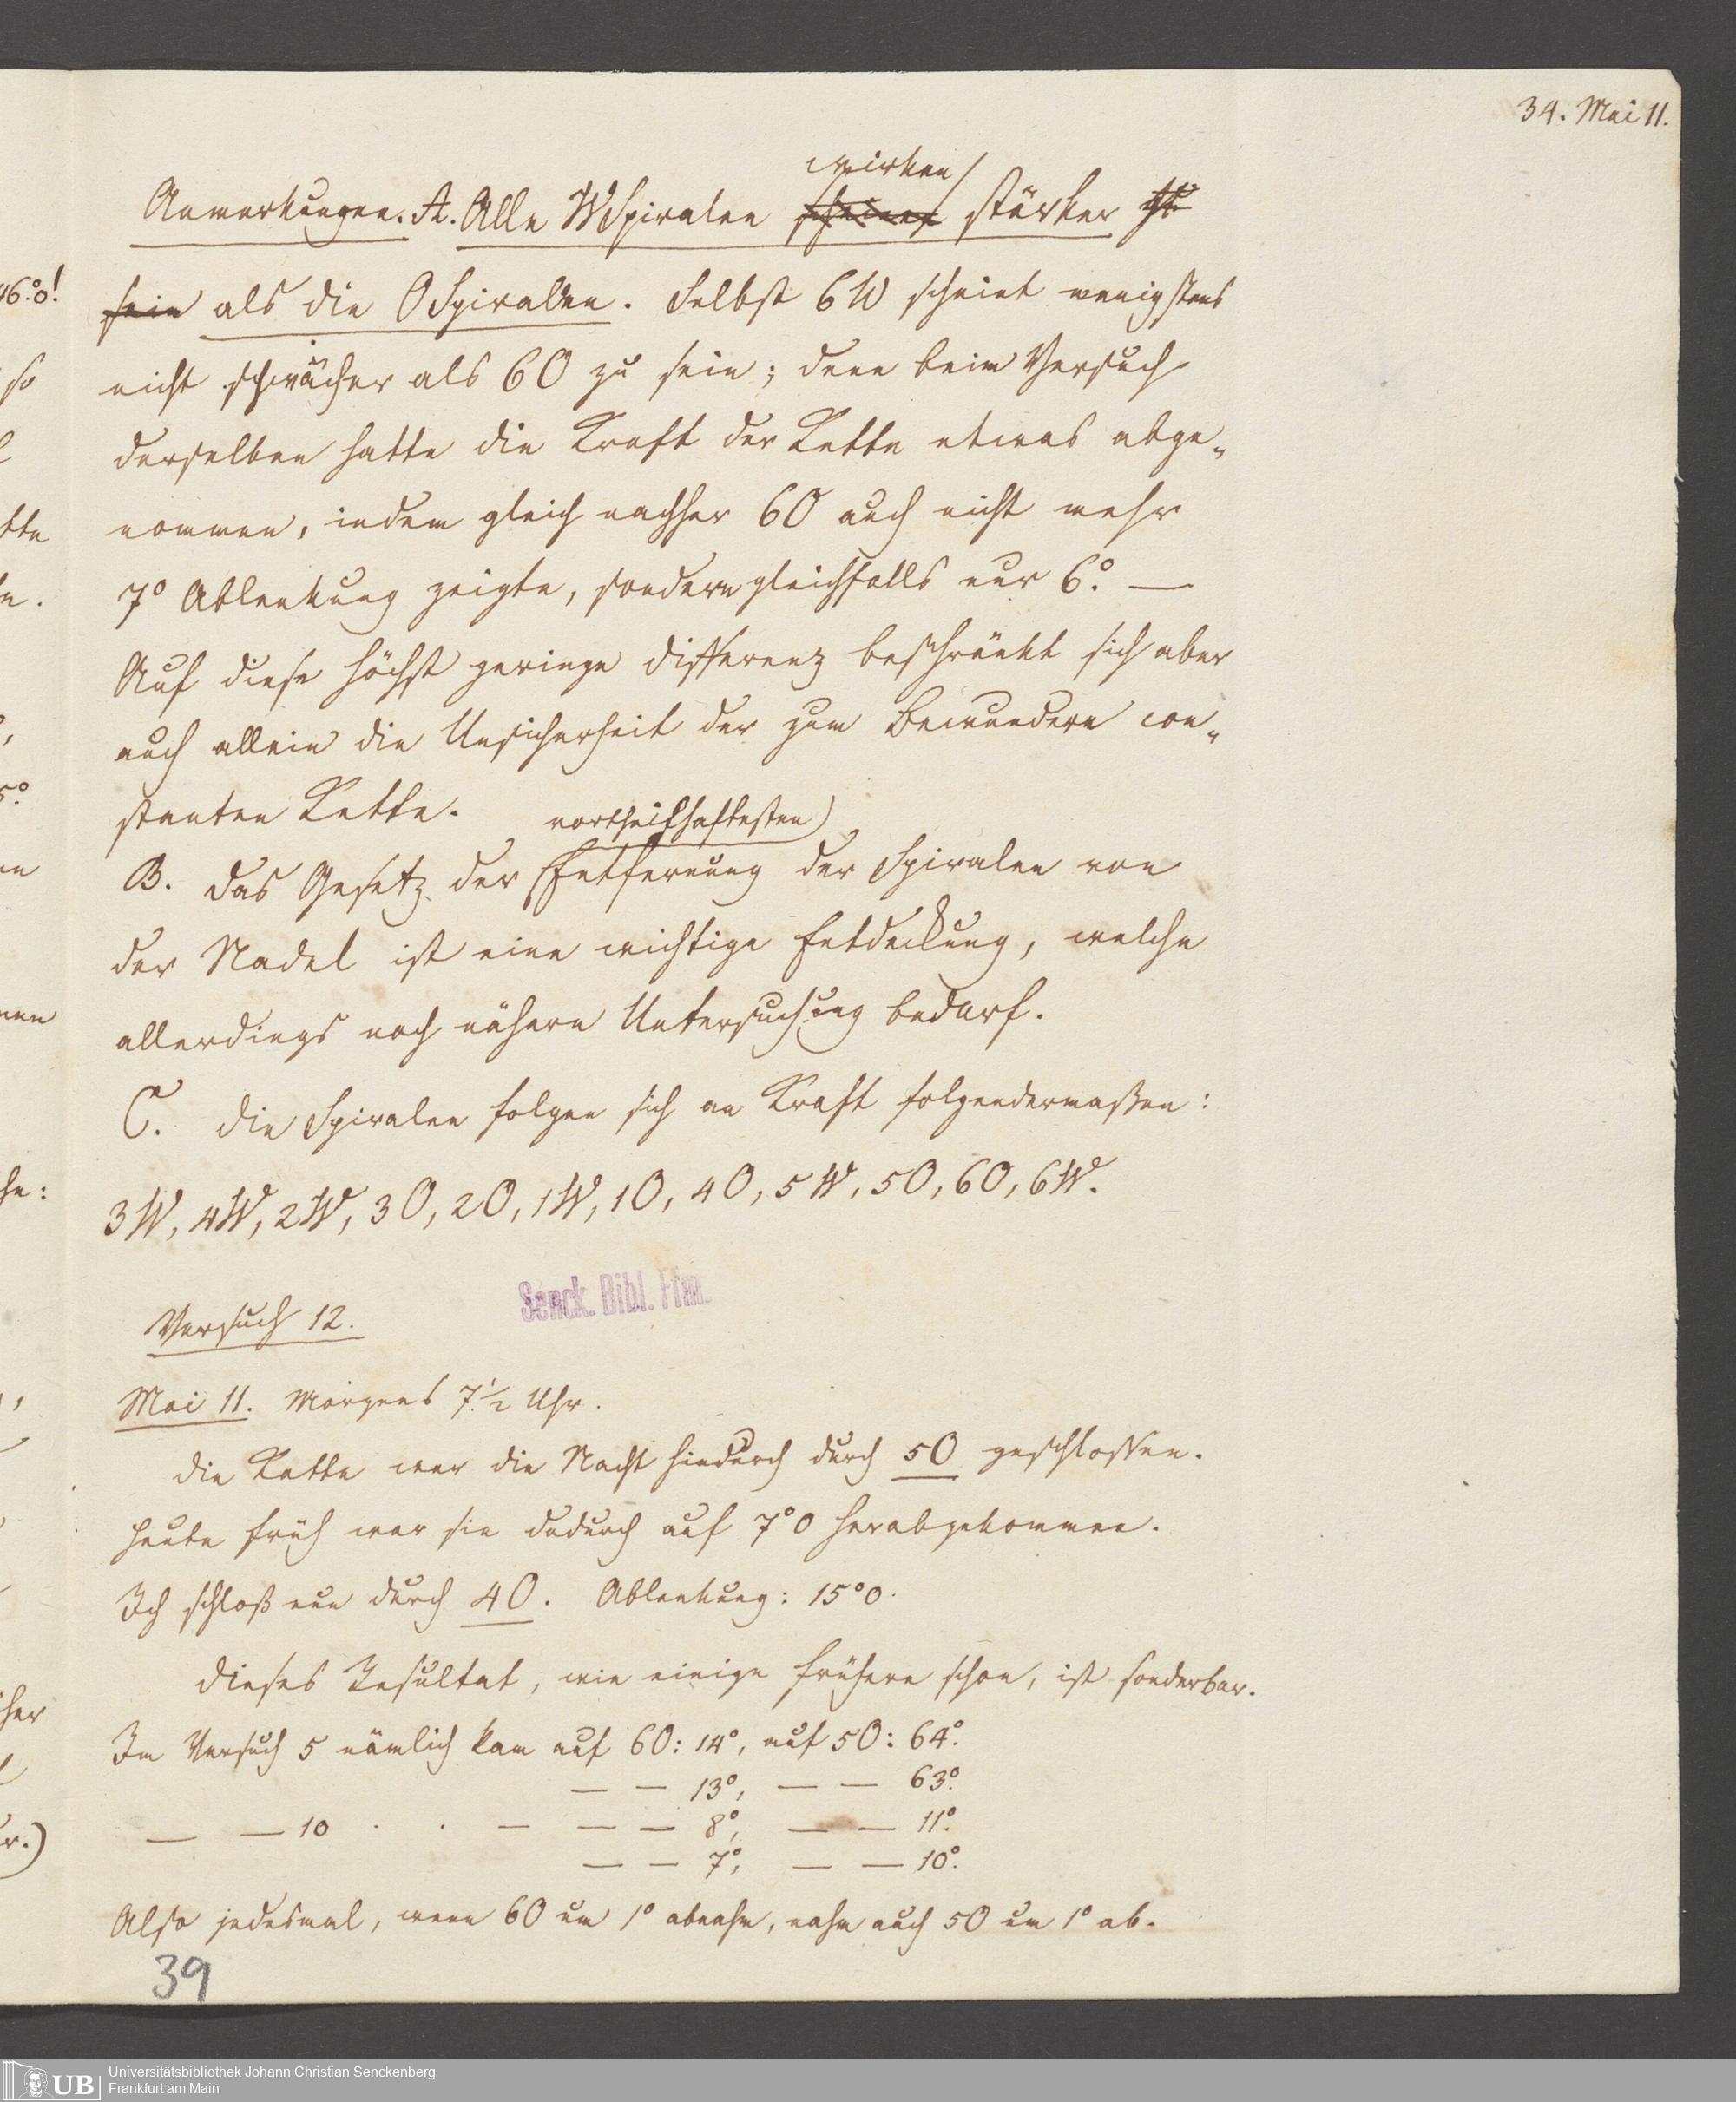 34. Mai 11.
wirken
Anmerkungen. A. Alle WSpiralen scheinen stärker
sein als die OSpiralen. Selbst 6W scheint wenigstens
nicht schwächer als 6O zu sein; denn beim Versuch
derselben hatte die Kraft der Kette etwas abge-
nommen, indem gleich nachher 6O auch nicht mehr
7° Ablenkung zeigte, sondern gleichfalls nur 6°. —
Auf diese höchst geringe Differenz beschränkt sich aber
auch allein die Unsicherheit der zum Bewundern con-
stanten Kette.
vortheilhaftesten
B. Das Gesetz der Entfernung der Spiralen von
der Nadel ist eine wichtige Entdeckung, welche
allerdings noch nähern Untersuchung bedarf.
C. Die Spiralen folgen sich an Kraft folgendermaßen:
3W, 4W, 2W, 3O, 2O, 1W, 1O, 4O, 5W, 5O, 6O, 6W.
Senck. Bibl. Ffm.
Versuch 12.
Mai 11. Morgens 7 1/2 Uhr.
Die Kette war die Nacht hindurch durch 5O geschlossen.
Heute früh war sie dadurch auf 7°O herabgekommen.
Ich schloß nun durch 4O. Ablenkung: 15°O.
Dieses Resultat, wie einige frühere schon, ist sonderbar.
Im Versuch 5 nämlich kam auf 6O: 14°, auf 5O: 64°.
— — 13°, — — 63°.
— — 10 . . — — — 8°, — — 11°.
— — 7°, — — 10°.
Also jedesmal, wenn 6O um 1° abnahm, nahm auch 5O um 1° ab.
39
46°.o!
so
tte
n.
5°.
en
nen
he:
her
r.)
UB
Universitätsbibliothek Johann Christian Senckenberg
Frankfurt am Main